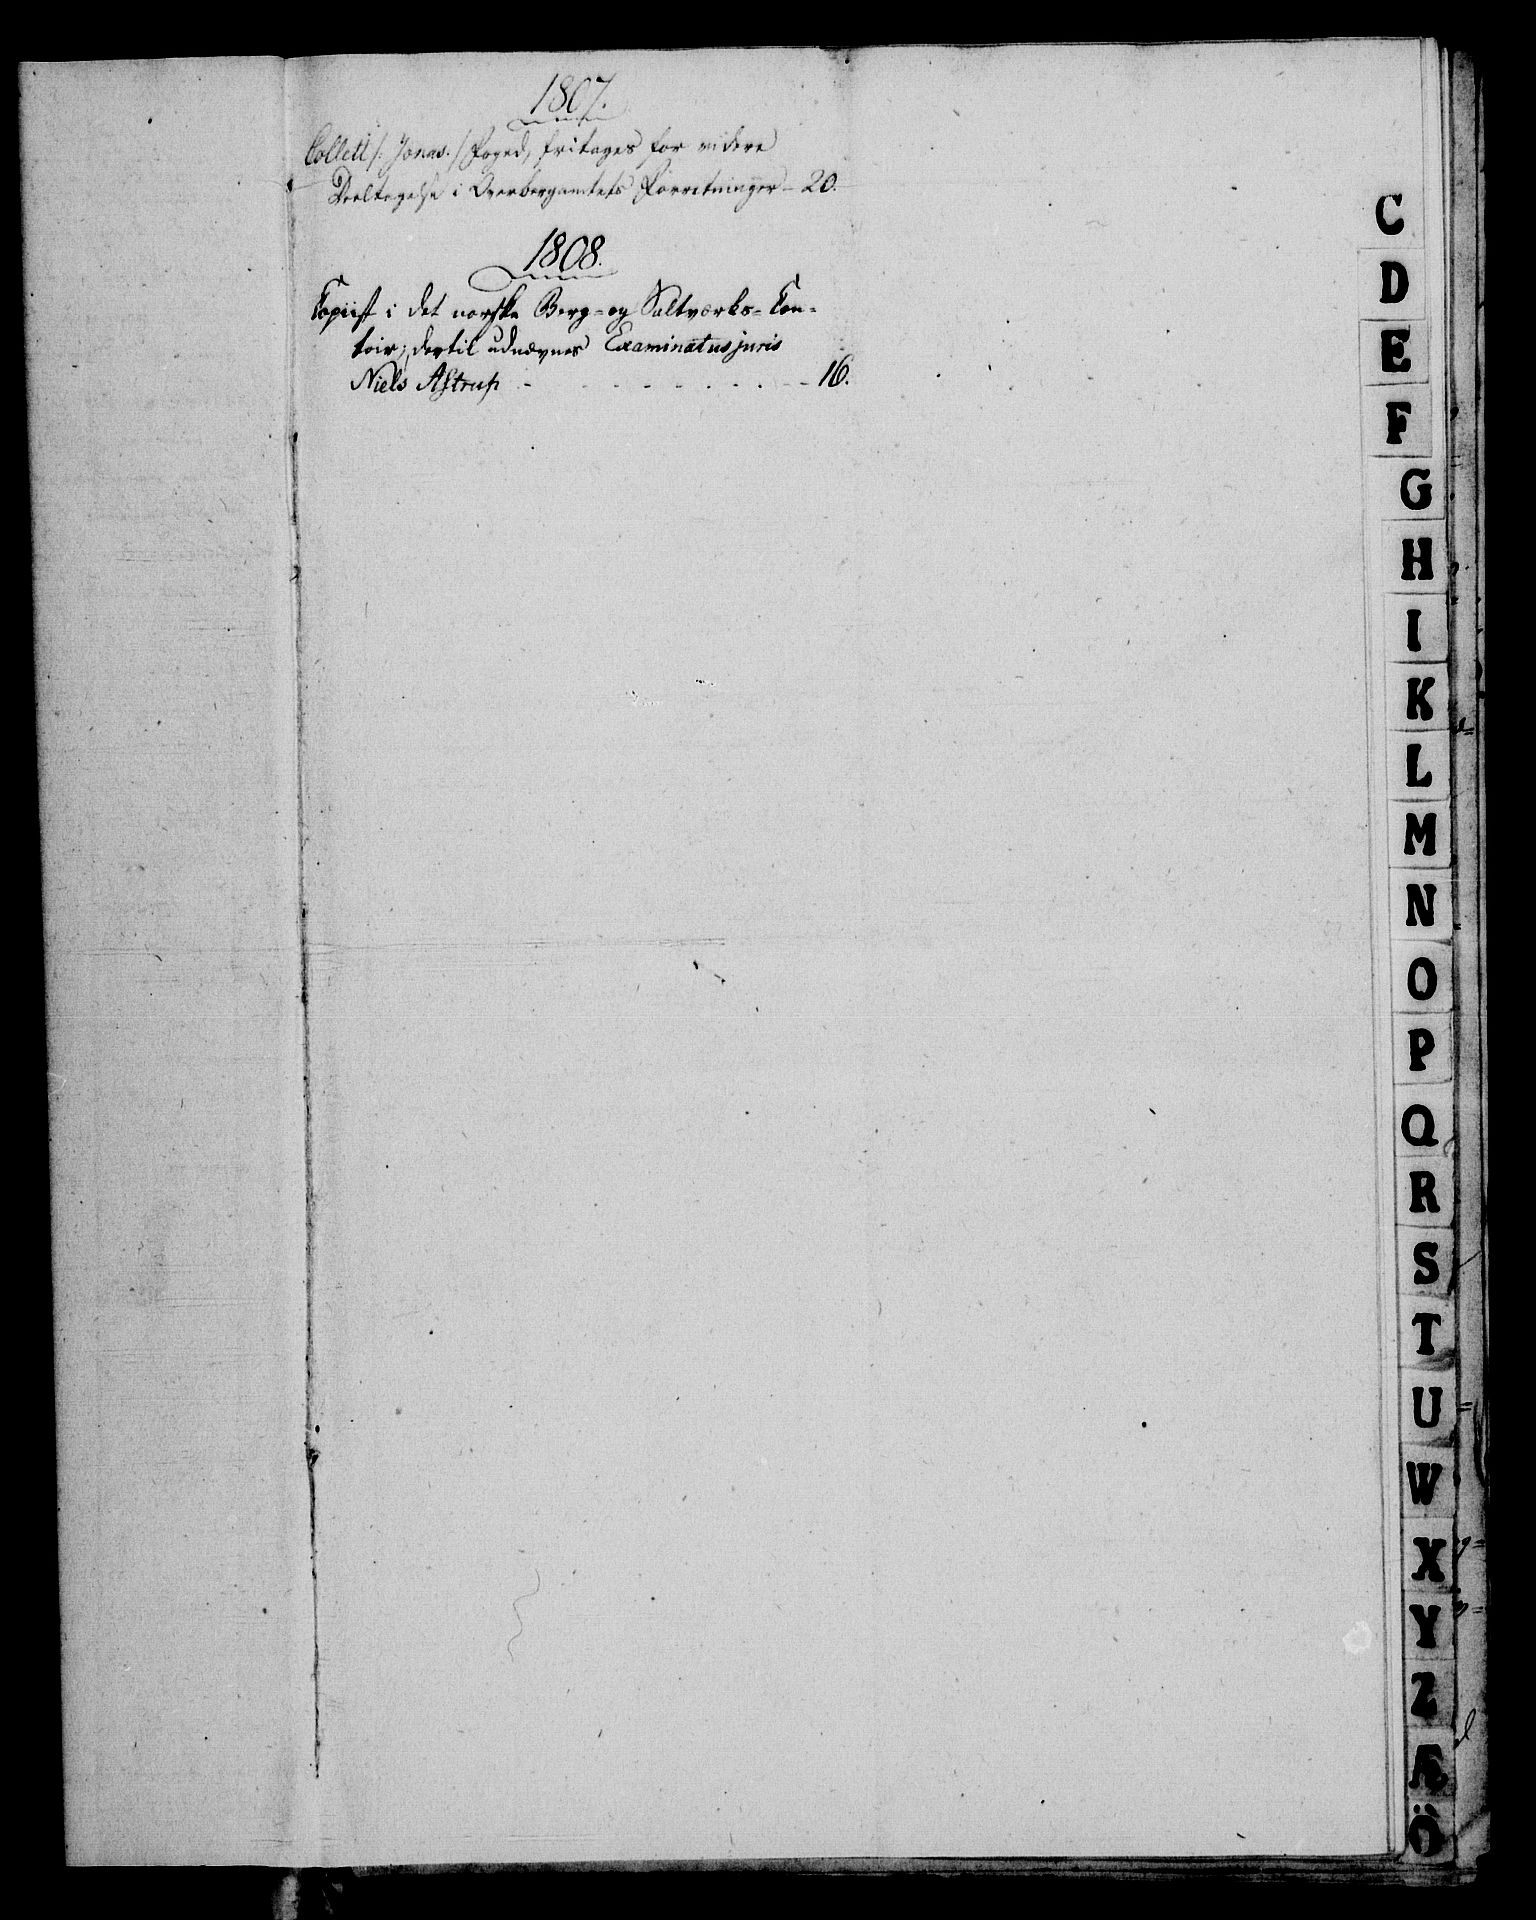 1807.
Collett /: Jonas. / Foged, fritages for videre
Deeltagelse i Overbergamtets Forretninger - 20.
1808.
Copiist i det norske Berg- og Saltværks- Con-
toir; dertil udnævnes Examinatus juris
Niels Astrup - - - - - - - - - 16.
C
D
E
F
G
H
I
K
L
M
N
O
P
Q
R
S
T
U
W
X
Y
Z
Æ
Ö